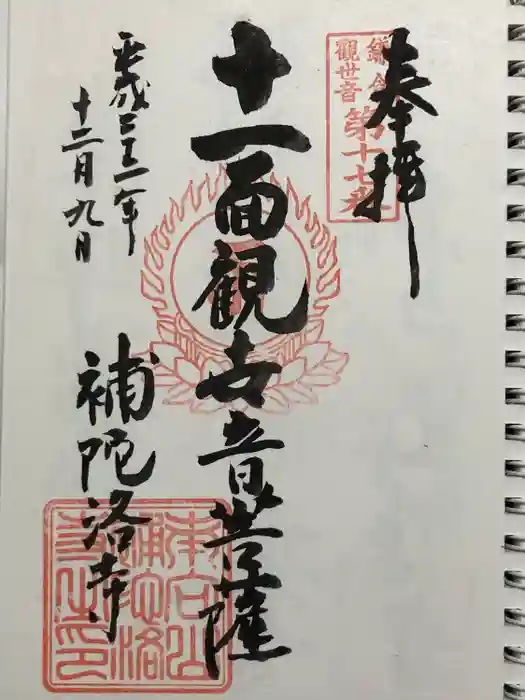 奉拝
鎌倉
觀世音
第十七番
十一面観世音菩薩
平成二十一年
十二月九日
補陀洛寺
南向山
補陀洛
寺之印